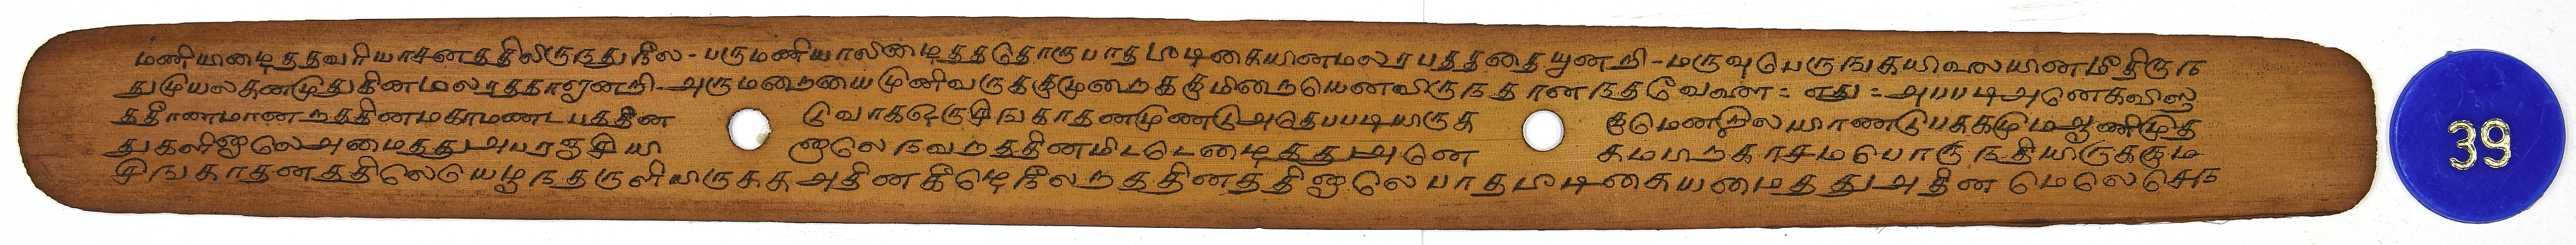 மணியழைத்தவரியாசனத்திலிருந்து நீல - பருமணியாலிழைத்ததொரு பாத பீடிகையினமலர பதத்தையூனறி - மருவு பெருஙகயிலையினமீதிருந
துமுயலகனமுதுகினமலரததாளூனறி - அருமறையைமுனிவருக்குமுறைக்குமிறையெனவிருநதானநதவேலா = எது = அபபடிஅனெகவிஸ
ததீரணமானறத்தினமகாமணடபத்தின டுவாகஒருசிஙகாதனமுணடுஅதெபபடியிருக குமெனறிலயாணடுபககமுமஆணிமுத
துகளினாலெஅமைத்துஅபரஞசியி னாலெநவறத்தினமிடடெழைத்துஅனெ கமமறகாசமபொருநதியிருக்கும
சிஙகாதனத்திலெயெழுநதருளியிருகக அதினகீழெநீலறத்தினத்தினாலெ பாதபீடிகையமைத்துஅதின மெலெசெந
39